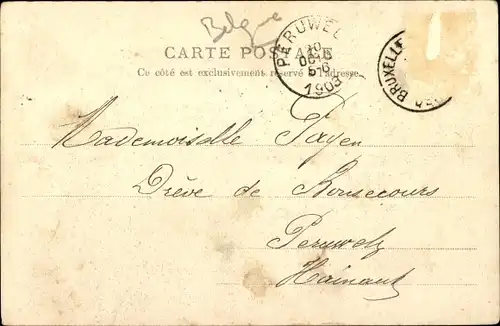 Belgique
CARTE POSTALE
Ce côté est exclusivement réservé à l'adresse.
PERUWELZ
10
1903
BRUXELLE
Mademoiselle Fayen
Drève de Bonsecours
Peruwelz
Hainaut